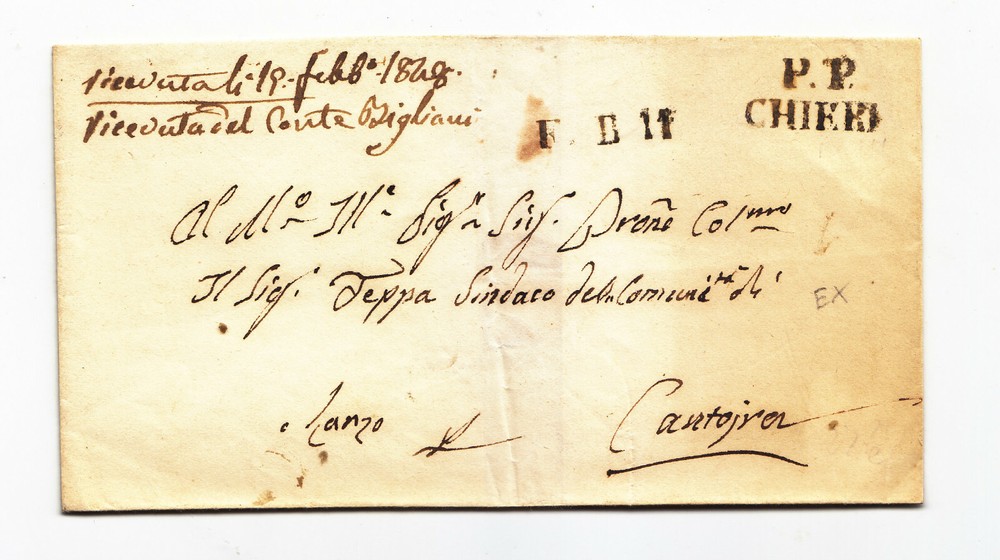 Ricevuta li 19. febb.o 1848.
Ricevuta del Conte Bigliani
P. P.
CHIERI
F B 11
Al M.o Ill.e Sig.r Sig. Prone Col.mo
Il Sig. Teppa Sindaco della Comuni.tà di
EX
Lanzo
Cantojra